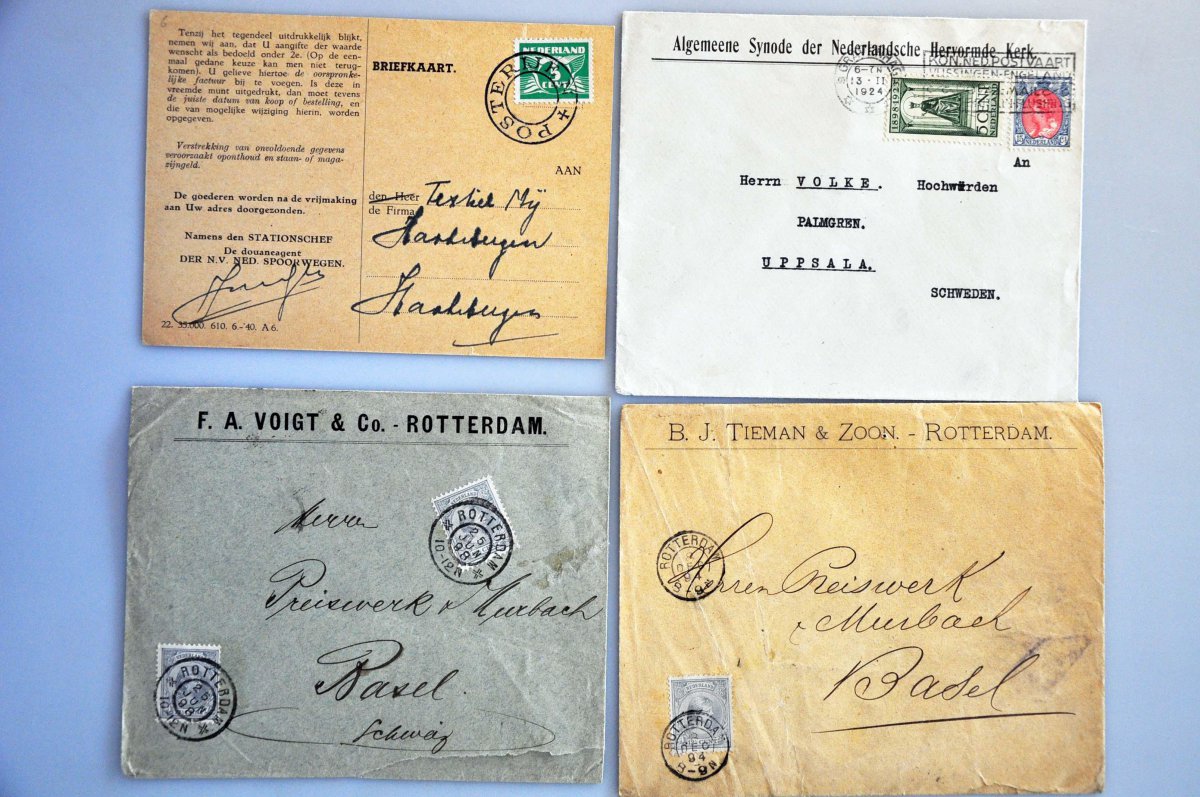 6
Tenzij het tegendeel uitdrukkelijk blijkt,
nemen wij aan, dat U aangifte der waarde
wenscht als bedoeld onder 2e. (Op een-
maal gedane keuze kan men niet terug-
komen). U gelieve hiertoe de oorspronke-
lijke factuur bij te voegen. Is deze in
vreemde munt uitgedrukt, dan moet tevens
de juiste datum van koop of bestelling, en
die van mogelijke wijziging hierin, worden
opgegeven.
Verstrekking van onvoldoende gegevens
veroorzaakt oponthoud en staan- of maga-
zijngeld.
De goederen worden na de vrijmaking
aan Uw adres doorgezonden.
Namens den STATIONSCHEF
De douaneagent
DER N.V. NED. SPOORWEGEN.
22. 35.000. 610. 6.-'40. A6.
BRIEFKAART.
NEDERLAND
5
CENT
POSTERIJEN
AAN
den Heer Textiel Mij
de Firma
Haaksbergen
Haaksbergen
Algemeene Synode der Nederlandsche Hervormde Kerk.
6-7N
13·II
1924
KON.NED.POSTVAART
VLISSINGEN-ENGELAND
1898-1923
5 CENT
NEDERLAND
An
Herrn VOLKE. Hochwürden
PALMGREN.
UPPSALA.
SCHWEDEN.
F. A. VOIGT & Co. - ROTTERDAM.
ROTTERDAM
25
JUN
98
10-12N
Herren
Preiswerk & Murbach
Basel.
Schweiz
ROTTERDAM
25
JUN
98
10-12N
B. J. TIEMAN & ZOON. - ROTTERDAM.
ROTTERDAM
DEC
94
8-9N
Herren Preiswerk
& Murbach
Basel
NEDERLAND
ROTTERDAM
DEC
94
8-9N